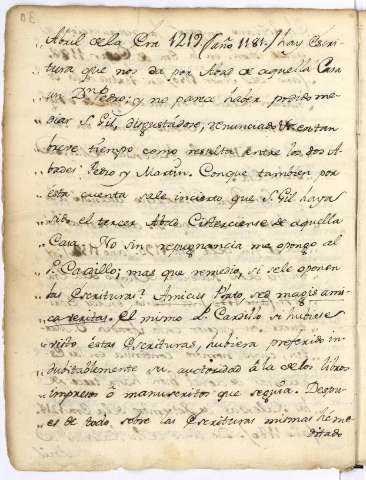 Abril de la Era 1219 (año 1181.) hay Escri-
„ tura que nos da por Abad de aquella Casa
„ un Dn. Pedro; y no parece haber podido me-
„ diar S. Gil, disgustádose, renunciado &c en tan
„ breve tiempo como resulta entre los dos A-
„ bades Pedro y Martin. Conque tambien por
„ esta cuenta sale incierto que S. Gil haya
„ sido el tercer Abad Cisterciense de aquella
„ Casa. No sin repugnancia me opongo al
„ P. Cardillo; mas que remedio, si se le oponen
„ las Escrituras? Amicus Plato, sed magis ami-
„ ca veritas. El mismo P. Cardillo si hubiese
„ visto éstas Escrituras, hubiera preferido in-
„ dubitablemente su autoridad á la de los libros
„ impresos ó manuscritos que seguia. Despu-
„ es de todo sobre las Escrituras mismas he me-
ditado